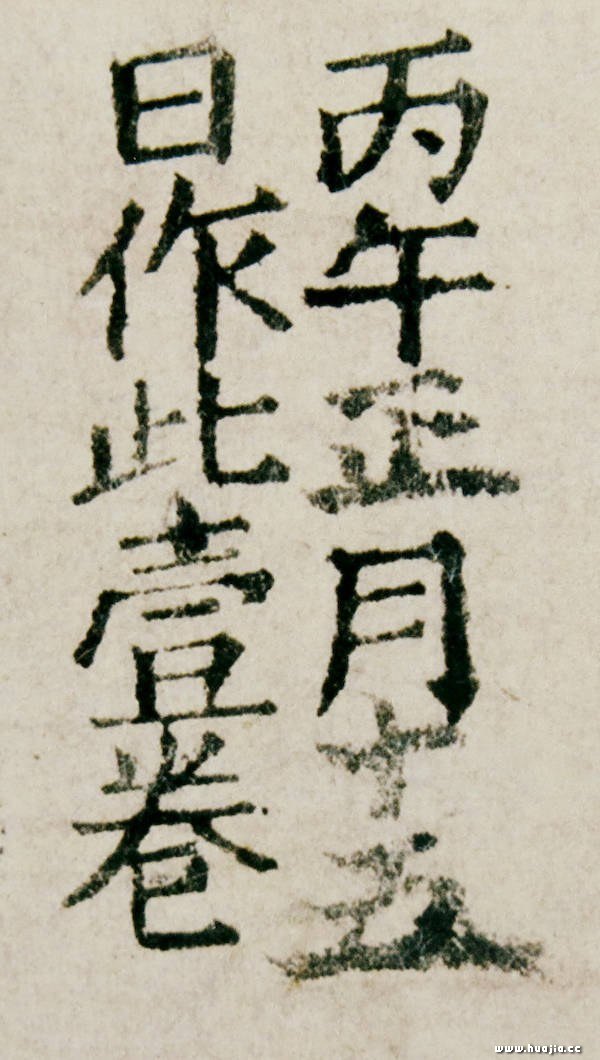 丙午正月十五
日作此壹卷
www.huajia.cc